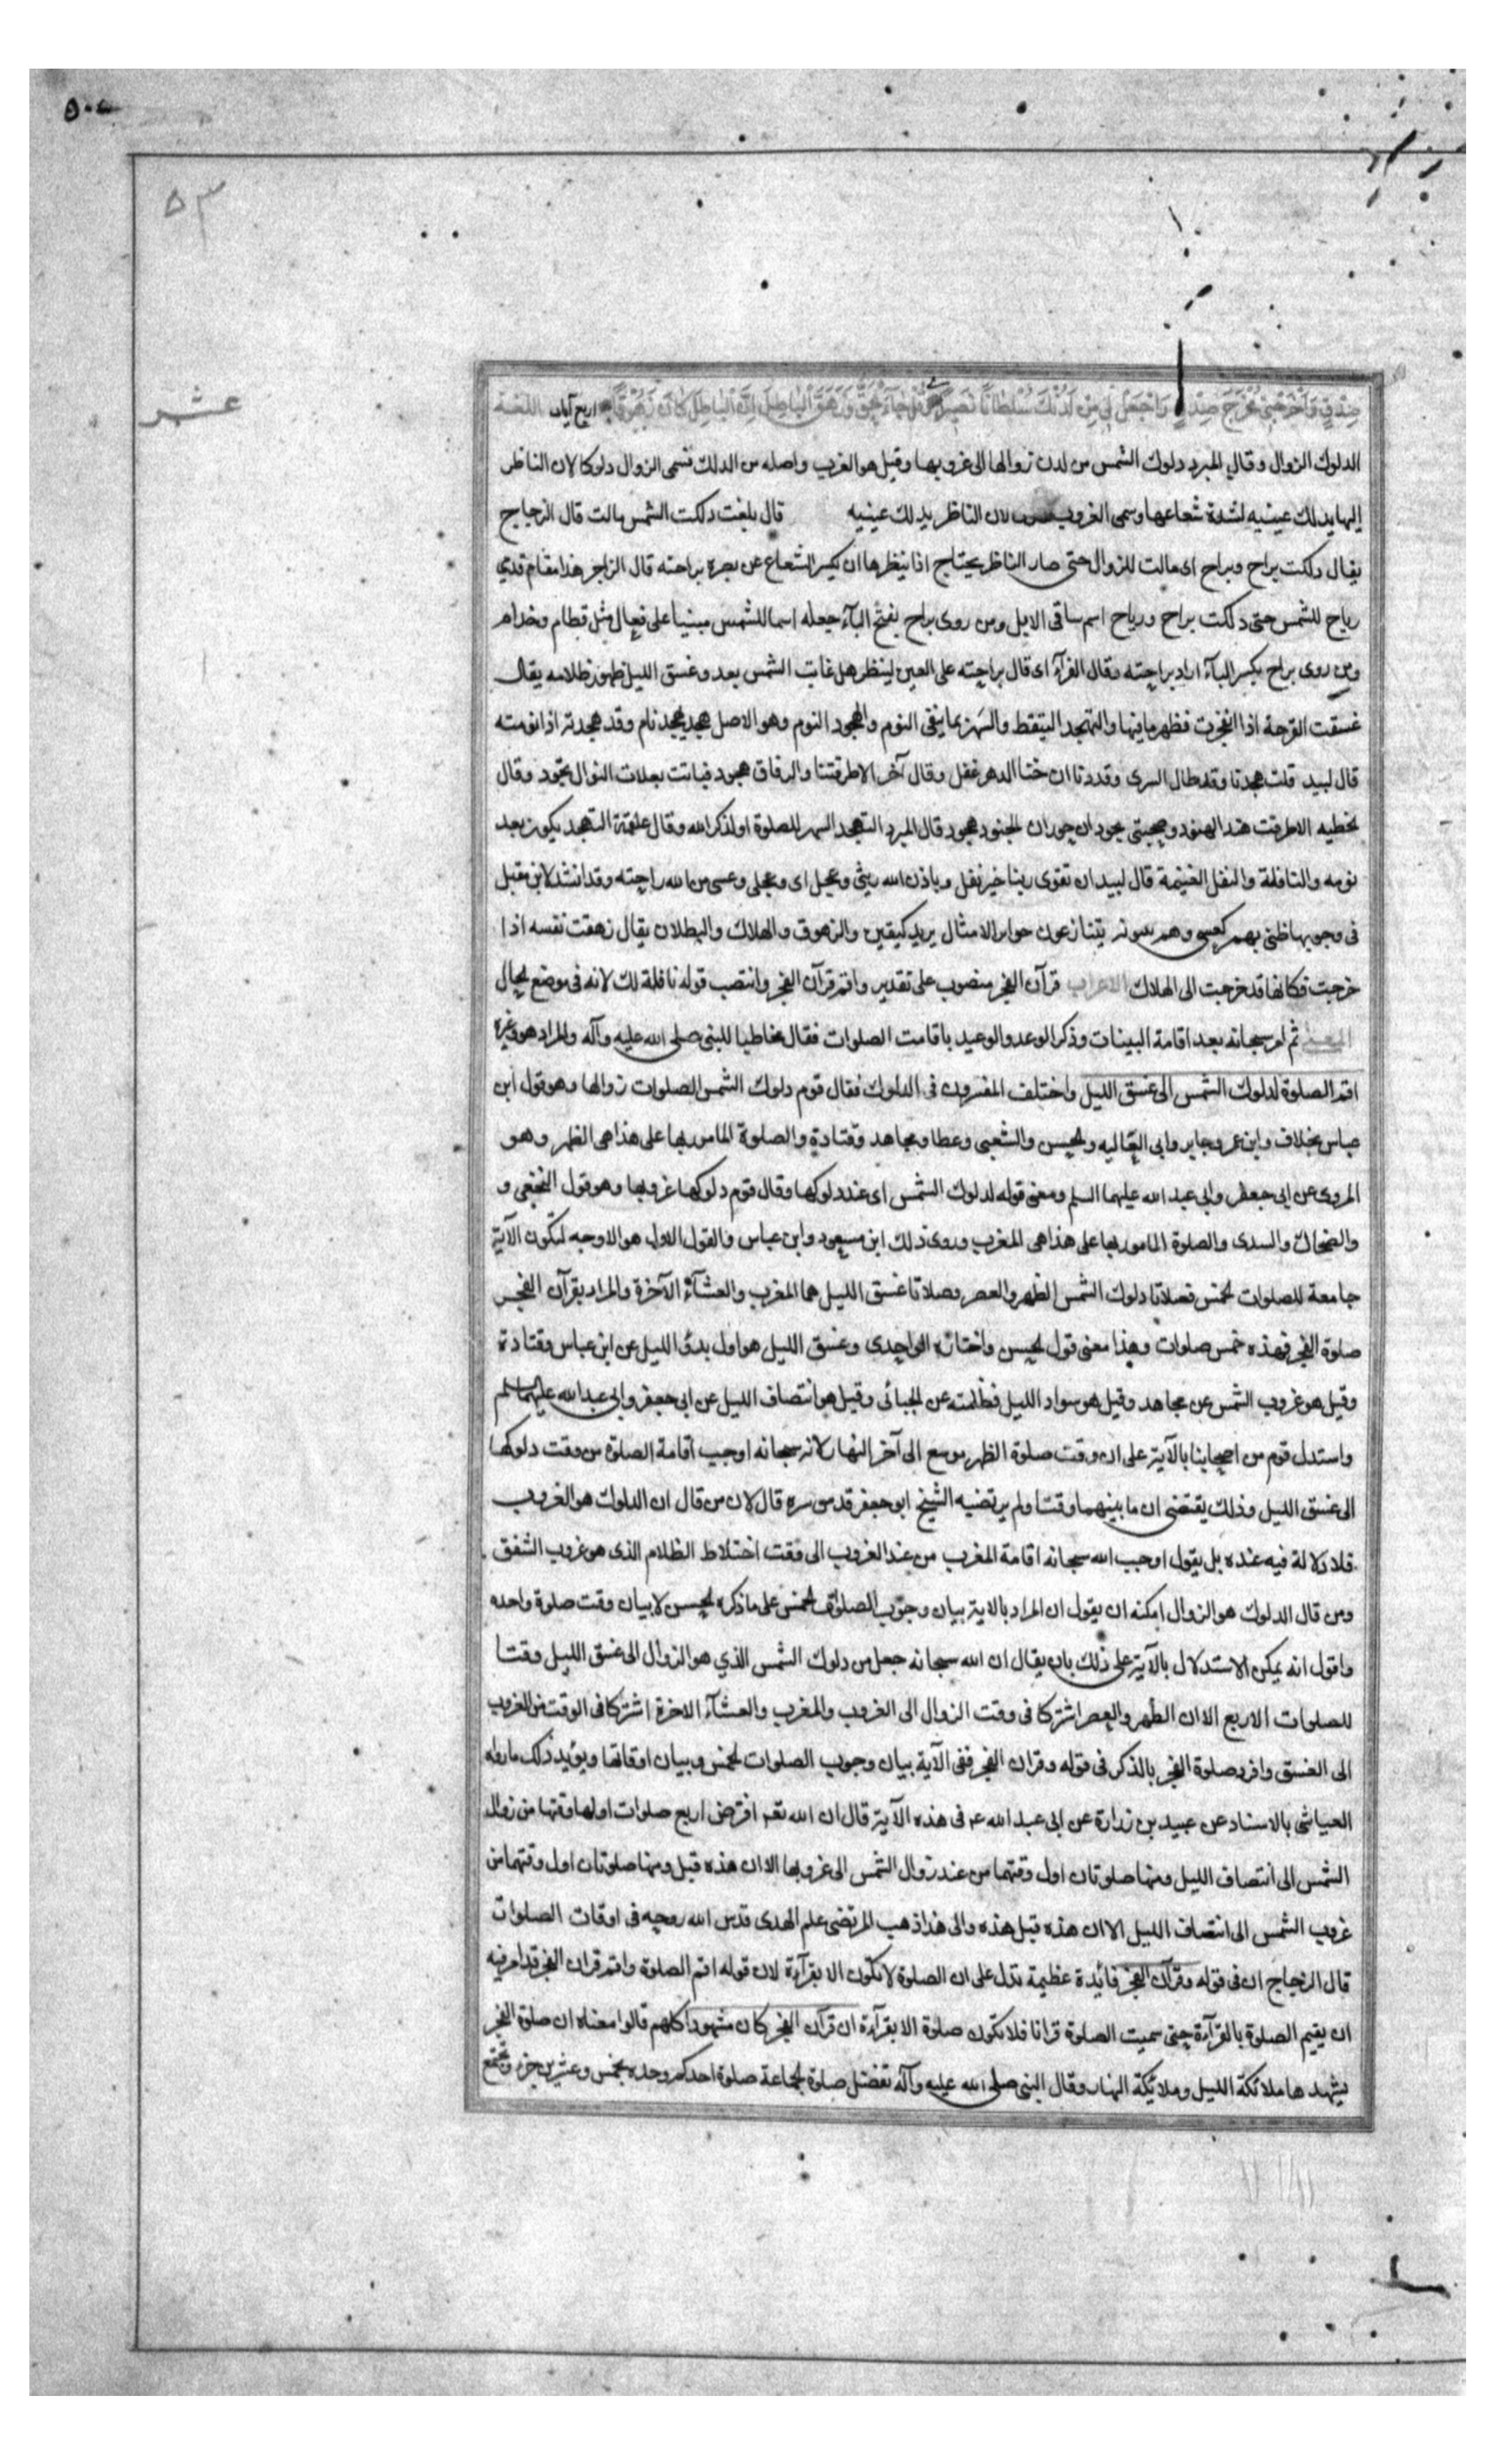 ٥٣
عشر
صِدْقٍ وَاَخْرِجْنِي مُخْرَجَ صِدْقٍ وَاجْعَلْ لِي مِنْ لَدُنْكَ سُلْطَانًا نَصِيرًا وَقُلْ جَاءَ الْحَقُّ وَزَهَقَ الْبَاطِلُ اِنَّ الْبَاطِلَ كَانَ زَهُوقًا اربع آيات اللغة
الدلوك الزوال وقال المبرد دلوك الشمس من لدن زوالها الى غروبها وقيل هو الغروب واصله من الدلك تسمى الزوال دلوكا لان الناظر
اليها يدلك عينيه لشدة شعاعها وسمى الغروب لان الناظر يدلك عينيه قال بلغت دلكت الشمس مالت قال الزجاج
يقال دلكت براح وبراح اى مالت للزوال حتى صار الناظر يحتاج اذا ينظرها ان يكسر الشعاع عن بصره براحته قال الراجز هذا مقام قدمي
رباح للشمس حتى دلكت براح ورباح اسم ساقى الابل ومن روى براح بفتح البآء جعله اسما للشمس مبنيا على فعال مثل قطام وحذام
ومن روى براح بكسر البآء اراد براحته وقال الفرآء اى قال براحته على العين لينظر هل غابت الشمس بعد وغسق الليل ظهور ظلامه يقال
غسقت القرحة اذا انفجرت فظهر ما فيها والتهجد التيقظ والسهر بما ينفى النوم والهجود النوم وهو الاصل هجد يهجد نام وقد هجدته اذا نومته
قال لبيد قلت هجدنا وقد طال السرى وقدرنا ان خنا الدهر غفل وقال آخر الا طرقتنا والرفاق هجود فباتت بعلات النوال تجود وقال
لحطيه الا طرقت هند الهنود وصحبتى بحوران حوران الجنود هجود قال المبرد التهجد السهر للصلوة او لذكر الله وقال علقمة التهجد يكون بعد
نومه والنافلة والنفل الغنيمة قال لبيد ان تقوى ربنا خير نفل وباذن الله ريثى وعجل اى وعجلى وعسى من الله راجته وقد انشد لابن مقبل
فى وجوبها ظنى بهم كعسى وهم يتنازعون جوابر الامثال يريد كيقين والزهوق والهلاك والبطلان يقال زهقت نفسه اذا
خرجت فكانها قد خرجت الى الهلاك الاعراب قرآن الفجر منصوب على تقدير واقم قرآن الفجر وانتصب قوله نافلة لك لانه فى موضع الحال
المعنى ثم امر سبحانه بعد اقامة البينات وذكر الوعد والوعيد باقامت الصلوات فقال مخاطبا للنبى صلى الله عليه وآله والمراد هو وغيره
اقم الصلوة لدلوك الشمس الى غسق الليل واختلف المفسرون فى الدلوك فقال قوم دلوك الشمس الصلوات زوالها وهو قول ابن
عباس بخلاف وابن عمر وجابر وابى العاليه والحسن والشعبى وعطا ومجاهد وقتادة والصلوة المامور بها على هذا هى الظهر وهو
المروى عن ابى جعفر وابى عبد الله عليهما السلم ومعنى قوله لدلوك الشمس اى عند دلوكها وقال قوم دلوكها غروبها وهو قول النخعى و
والضحاك والسدى والصلوة المامور بها على هذا هى المغرب وروى ذلك ابن مسعود وابن عباس والقول الاول هو الاوجه لتكون الآية
جامعة للصلوات الخمس فصلاتا دلوك الشمس الظهر والعصر وصلاتا غسق الليل هما المغرب والعشآء الآخرة والمراد بقرآن الفجر
صلوة الفجر فهذه خمس صلوات وهذا معنى قول الحسن واختاره الواحدى وغسق الليل هو اول بدؤ الليل عن ابن عباس وقتادة
وقيل هو غروب الشمس عن مجاهد وقيل هو سواد الليل فظلمته عن الجبائى وقيل هو انتصاف الليل عن ابى جعفر وابى عبد الله عليهما السلم
واستدل قوم من اصحابنا بالآية على ان وقت صلوة الظهر موسع الى آخر النهار لانه سبحانه اوجب اقامة الصلوة من وقت دلوكها
الى غسق الليل وذلك يقتضى ان ما بينهما وقتا ولم يرتضيه الشيخ ابو جعفر قدس سره قال لان من قال ان الدلوك هو الغروب
فلا دلالة فيه عنده بل يقول اوجب الله سبحانه اقامة المغرب من عند الغروب الى وقت اختلاط الظلام الذى هو غروب الشفق
ومن قال الدلوك هو الزوال امكنه ان يقول ان المراد بالاية بيان وجوب الصلوات الخمس على ما ذكره الحسن لا بيان وقت صلوة واحده
واقول انه يمكن الاستدلال بالآية على ذلك بان يقال ان الله سبحانه جعل من دلوك الشمس الذي هو الزوال الى غسق الليل وقتا
للصلوات الاربع الا ان الظهر والعصر اشتركا فى وقت الزوال الى الغروب والمغرب والعشآء الاخرة اشتركا فى الوقت من الغروب
الى الغسق وافرد صلوة الفجر بالذكر فى قوله وقران الفجر ففى الآية بيان وجوب الصلوات الخمس وبيان اوقاتها ويؤيد ذلك ما رواه
العياشى بالاسناد عن عبيد بن زرارة عن ابى عبد الله ع فى هذه الآية قال ان الله تعم افترض اربع صلوات اولها وقتها من زوال
الشمس الى انتصاف الليل ومنها صلوتان اول وقتهما من عند زوال الشمس الى غروبها الا ان هذه قبل ومنها صلوتان اول وقتهما من
غروب الشمس الى انتصاف الليل الا ان هذه قبل هذه والى هذا ذهب المرتضى علم الهدى قدس الله روحه فى اوقات الصلوات
قال الزجاج ان فى قوله وقرآن الفجر فائدة عظيمة تدل على ان الصلوة لا تكون الا بقرآءة لان قوله اقم الصلوة واقم قران الفجر قد امر فيه
ان يقيم الصلوة بالقرآءة حتى سميت الصلوة قرانا فلا تكون صلوة الا بقرآءة ان قرآن الفجر كان مشهودا كلهم قالوا معناه ان صلوة الفجر
يشهدها ملائكة الليل وملائكة النهار وقال النبى صلى الله عليه وآله تفضل صلوة الجماعة صلوة احدكم وحده بخمس وعشرين جزء وتجتمع